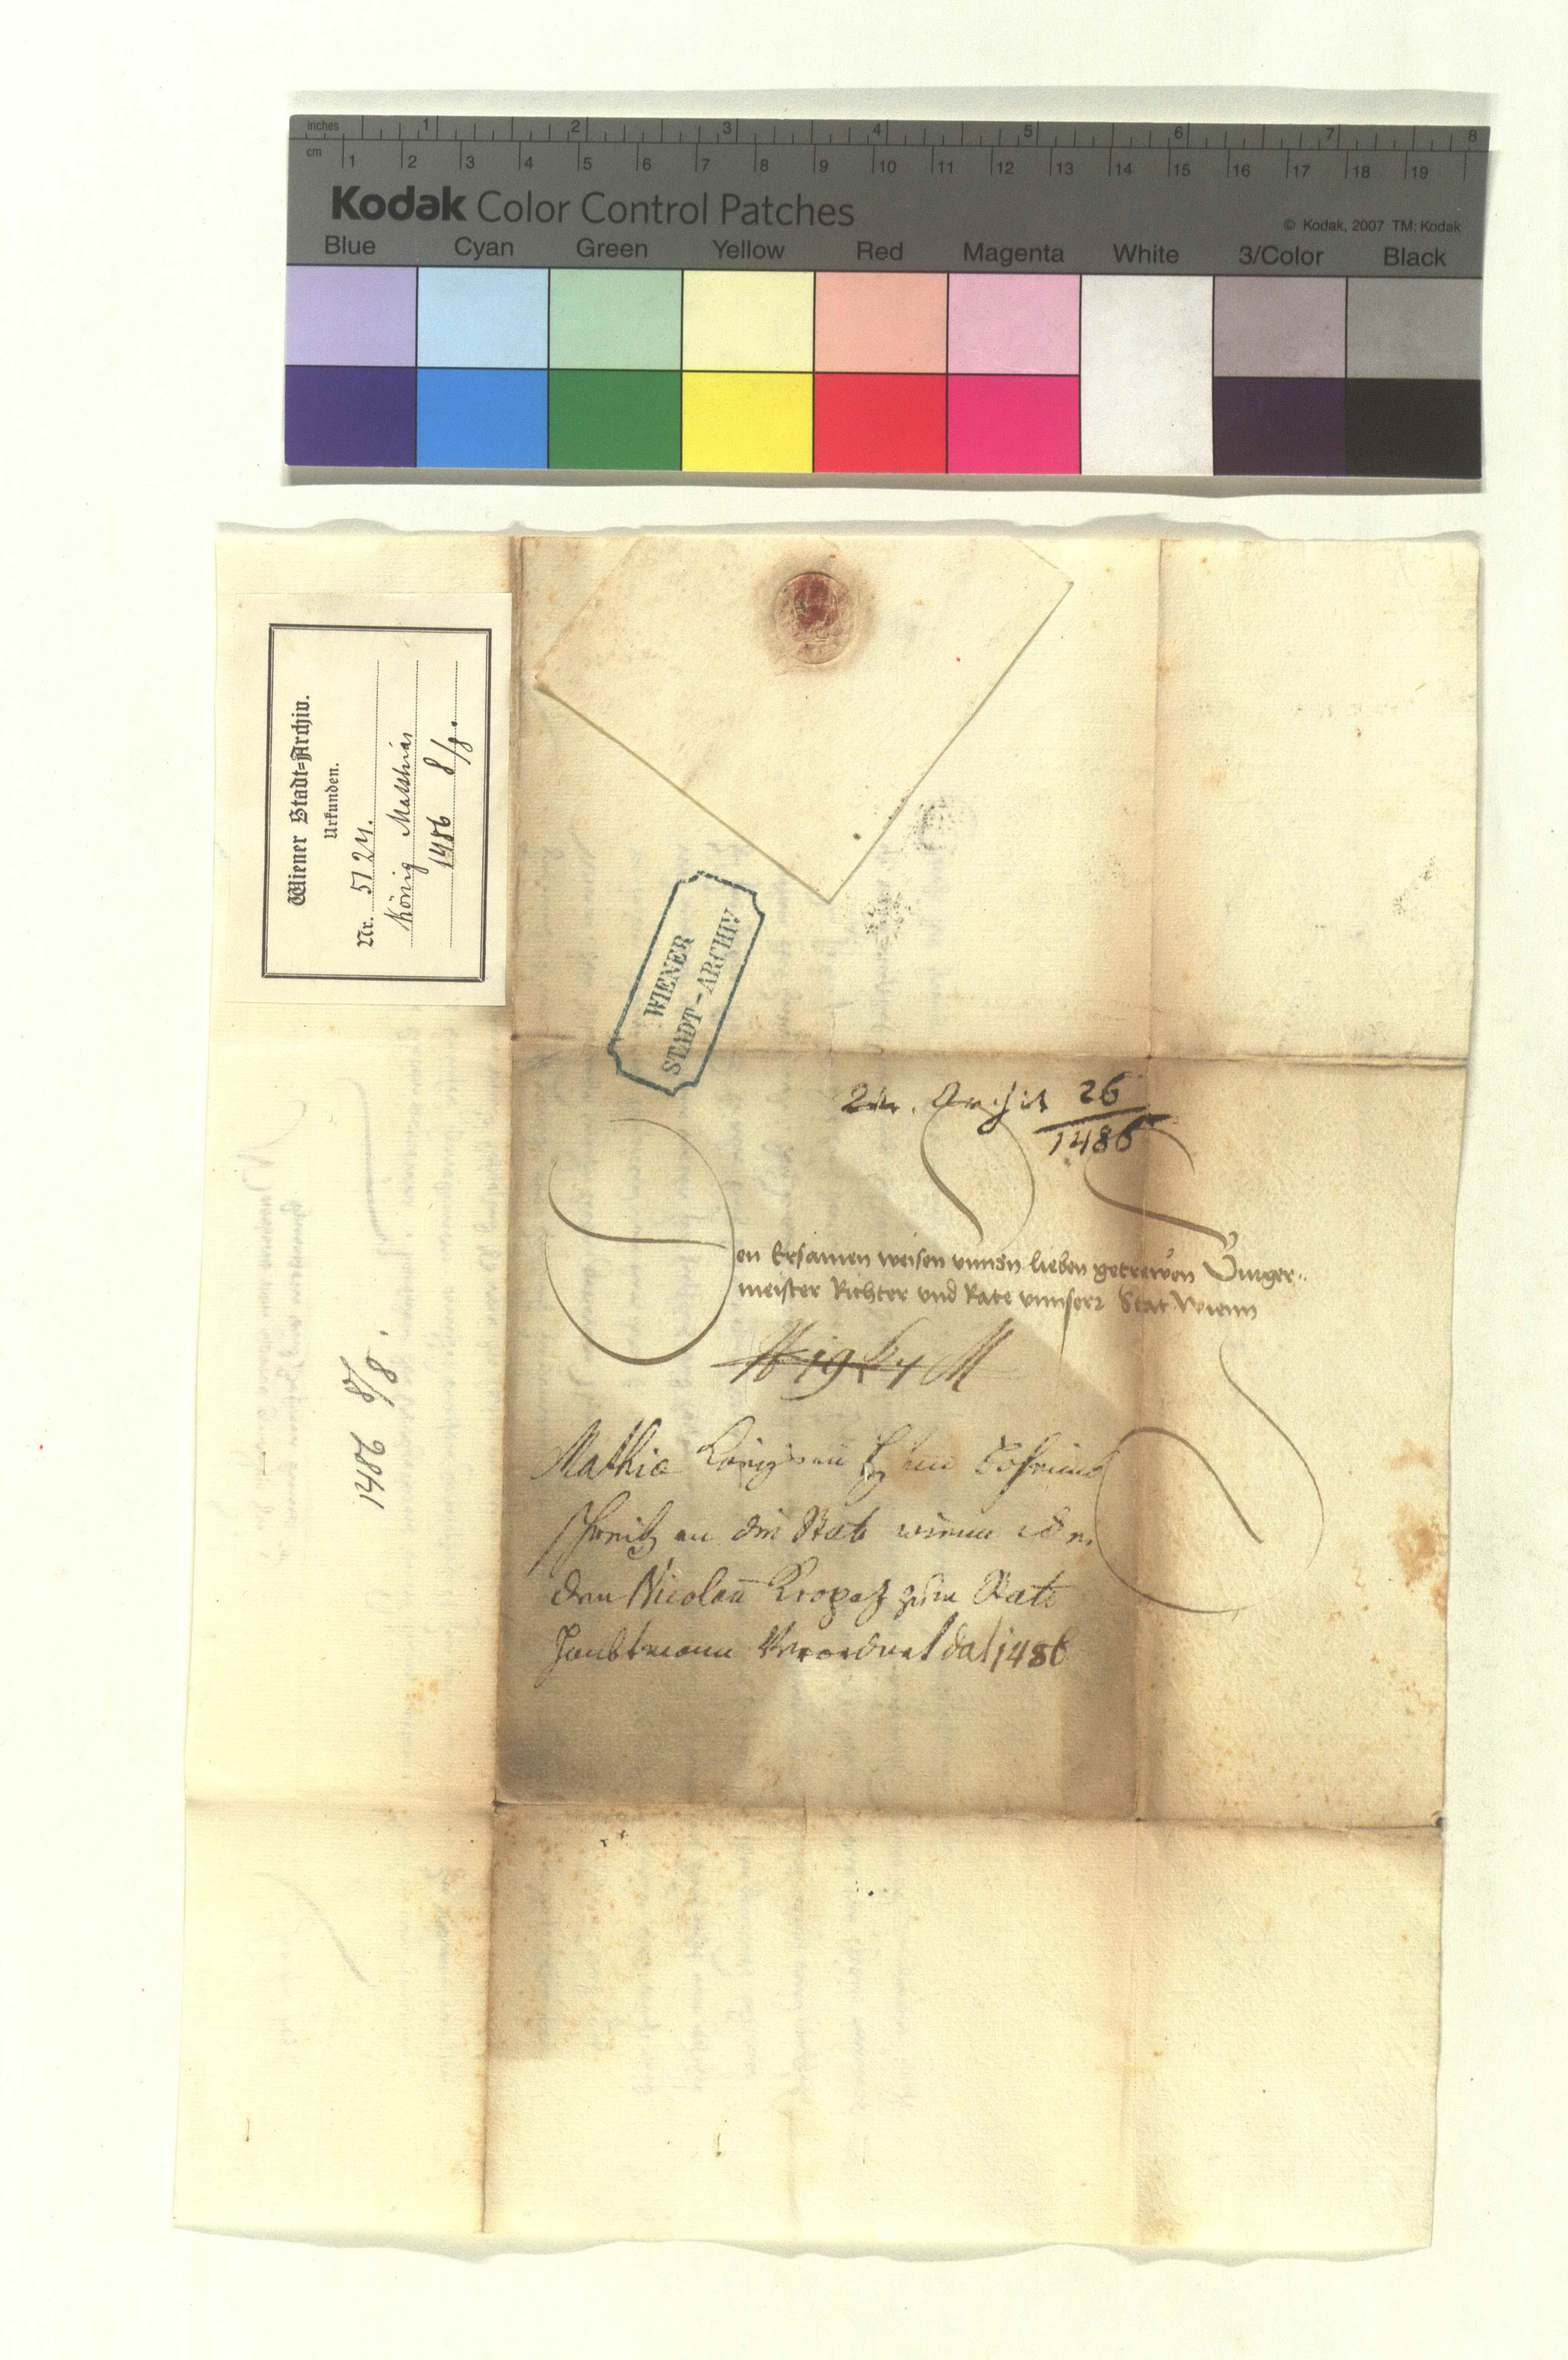 inches 1 2 3 4 5 6 7 8
cm 1 2 3 4 5 6 7 8 9 10 11 12 13 14 15 16 17 18 19
Kodak Color Control Patches
© Kodak, 2007 TM: Kodak
Blue Cyan Green Yellow Red Magenta White 3/Color Black
Wiener Stadt=Archiv.
Urkunden.
Nr. 5124.
König Matthias
1486 8/8.
WIENER
STADT-ARCHIV
26
1486
Den Ersamen weisen vnnsn lieben getrewen Burger..
meister Richter vnd Rate vnnserr Stat Wienn
1486 8/8.
Mathia König
an die Statt wienn
den Nicolaū Kropaz zum Statt
Haubtmann Verordnet dat 1486